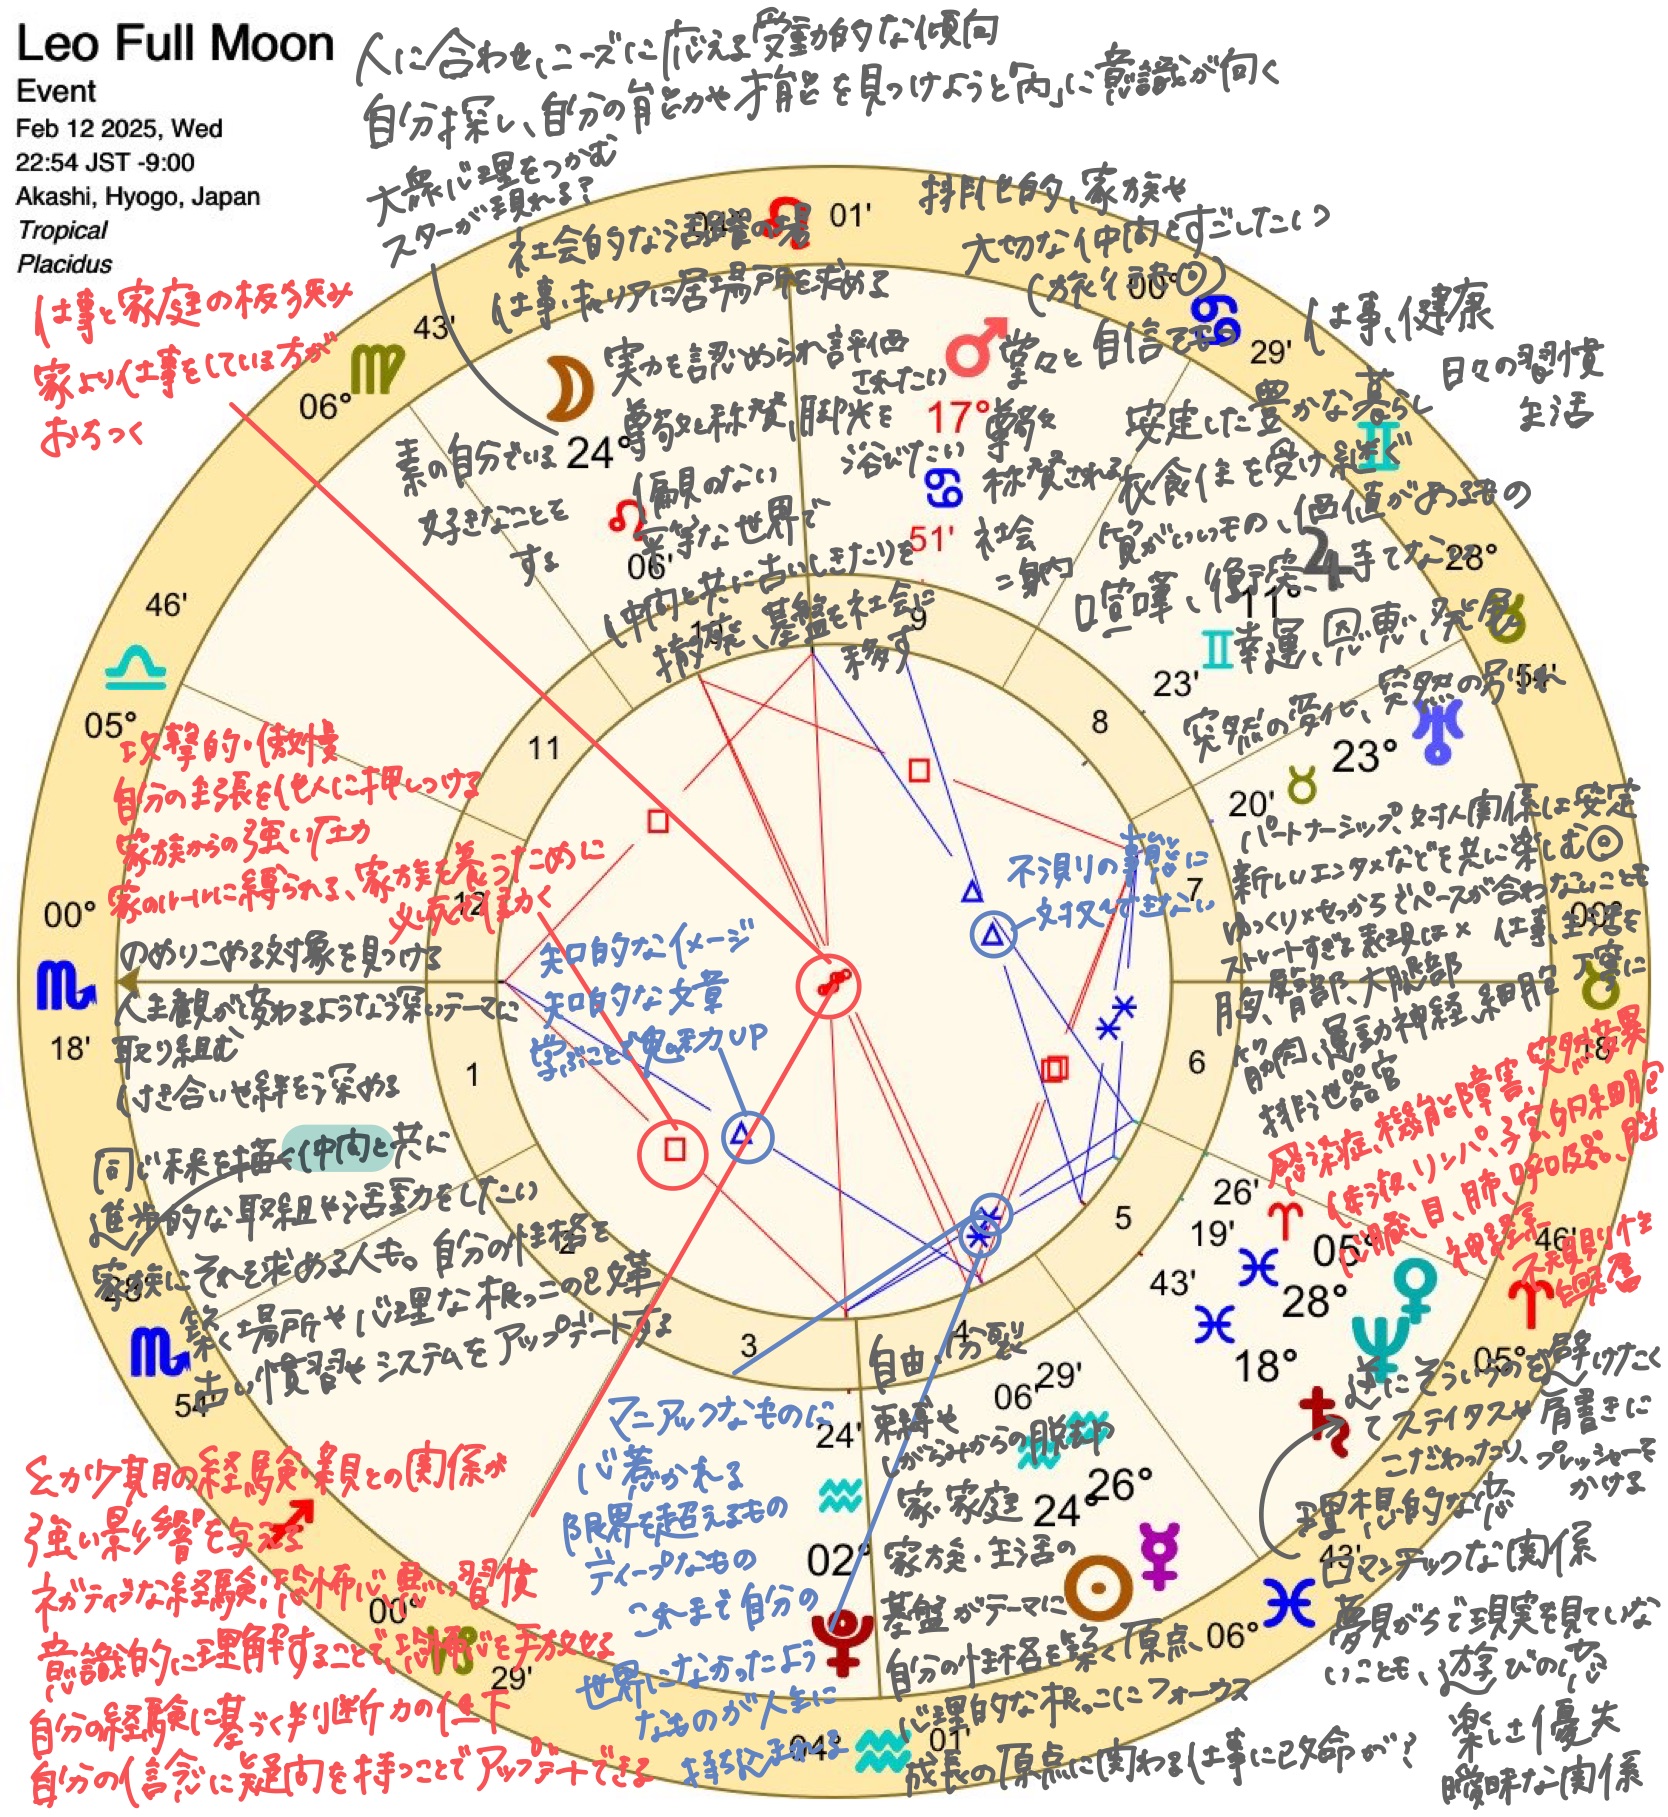 Leo Full Moon
Event
Feb 12 2025, Wed
22:54 JST -9:00
Akashi, Hyogo, Japan
Tropical
Placidus
人に合わせ、ニーズに応える受動的な傾向
自分探し、自分の能力や才能を見つけようと「内」に意識が向く
大衆心理をつかむ
スターが現れる?
社会的な活躍の場
仕事・キャリアに居場所を求める
排他的、家族や
大切な仲間とすごしたい
(旅行も◎)
01'
00°
29'
仕事と家庭の板挟み
家より仕事をしている方が
おちつく
43'
06°
素の自分でいる
好きなことを
する
24°
06'
実力を認められ評価
されたい
尊敬と称賛、脚光を
浴びたい
偏見のない
平等な世界で
仲間と共に古いしきたりを
撤廃、基盤を社会に
移す
17°
51'
堂々と自信をもつ
尊敬
称賛される
社会
=身内
仕事、健康
日々の習慣
生活
安定した豊かな暮らし
衣食住を受け継ぐ
質がいいもの、価値があるもの
喧嘩、衝突
11°
23'
28°
54'
幸運、恩恵、発展
突然の変化、突然の別れ
23°
20'
パートナーシップ、対人関係は安定
新しいエンタメなどを共に楽しむ◎
ゆっくり×せっかちでペースが合わないことも
ストレートすぎる表現は× 仕事、生活を
丁寧に
00°
18'
胸、背部、大腿部
筋肉、運動神経、細胞
排泄器官
感染症、機能障害、突然変異
体液、リンパ、子宮、卵細胞
心臓、目、肺、呼吸器、脳
神経系
不規則性
興奮
46'
05°
攻撃的・傲慢
自分の主張を他人に押しつける
家族からの強い圧力
家のルールに縛られる、家族を養うために
必死で働く
00°
18'
のめりこめる対象を見つける
人生観が変わるような深いテーマに
取り組む
付き合いや絆を深める
同じ未来を描く仲間と共に
進歩的な取組や活動をしたい
家族にそれを求める人も。自分の性格を
築く場所や心理な根っこの改革
古い慣習やシステムをアップデートする
54'
知的なイメージ
知的な文章
学ぶことで魅力UP
不測の事態に
対処できない
1
2
3
4
5
6
7
8
9
10
11
12
26'
19'
05°
43'
28°
18°
逆にそういうのを避けたく
てステイタスや肩書きに
こだわったり、プレッシャーを
かける
05°
理想的な恋
ロマンチックな関係
夢見がちで現実を見ていな
いことも、遊びの恋
楽しさ優先
曖昧な関係
43'
06°
幼少期の経験・親との関係が
強い影響を与える
ネガティブな経験・恐怖心・悪い習慣
意識的に理解することで、恐怖心を手放せる
自分の経験に基づく判断力の低下
自分の信念に疑問を持つことでアップデートできる
00°
29'
マニアックなものに
心惹かれる
限界を超えるもの
ディープなもの
これまで自分の
世界になかったよう
なものが人生に
持ち込まれる
24'
02°
04°
01'
自由、分裂
束縛や
しがらみからの脱却
家・家庭
家族・生活の
基盤がテーマに
自分の性格を築く原点、
心理的な根っこにフォーカス
成長の原点に関わる仕事に改命が?
06'
29'
24°
26°